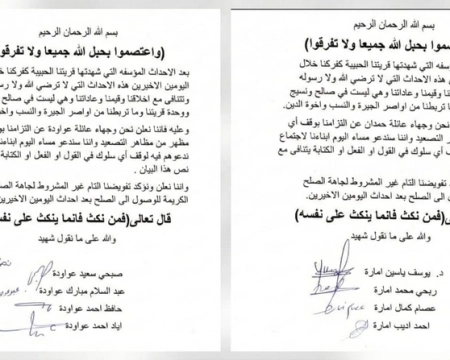 بسم الله الرحمان الرحيم
(واعتصموا بحبل الله جميعا ولا تفرقوا)
بعد الاحداث المؤسفه التي شهدتها قريتنا الحبيبة كفركنا خلال
اليومين الاخيرين هذه الاحداث التي لا ترضي الله ولا رسوله
وتتنافى مع اخلاقنا وقيمنا وعاداتنا وهي ليست في صالح
ووحدة قريتنا وما تربطنا من اواصر الجيرة والنسب واخوة
وعليه فاننا نعلن نحن وجهاء عائلة عواودة عن التزامنا بوقف
مظهر من مظاهر التصعيد واننا سندعو مساء اليوم ابناءنا
ندعوهم فيه لوقف أي سلوك في القول او الفعل او الكتابة
نص هذا البيان .
واننا نعلن ونؤكد تفويضنا التام غير المشروط لجاهة الصلح
الكريمة للوصول الى الصلح بعد احداث اليومين الاخيرين
قال تعالى(فمن نكث فانما ينكث على
والله على ما نقول شهيد
صبحي سعيد عواودة
عبد السلام مبارك عواودة
حافظ احمد عواودة
اياد احمد عواودة
بسم الله الرحمان الرحيم
بحبل الله جميعا ولا تفرقوا)
المؤسفه التي شهدتها قريتنا الحبيبة كفركنا خلال
هذه الاحداث التي لا ترضي الله ولا رسوله
وقيمنا وعاداتنا وهي ليست في صالح ونسيج
تربطنا من اواصر الجيرة والنسب واخوة الدين.
نحن وجهاء عائلة حمدان عن التزامنا بوقف أي
التصعيد واننا سندعو مساء اليوم ابناءنا لاجتماع
أي سلوك في القول او الفعل او الكتابة يتنافى مع
تفويضنا التام غير المشروط لجاهة الصلح
الى الصلح بعد احداث اليومين الاخيرين
نكث فانما ينكث على نفسه)
والله على ما نقول شهيد
د. يوسف ياسين امارة
ربحي محمد امارة
عصام كمال امارة
احمد اديب امارة